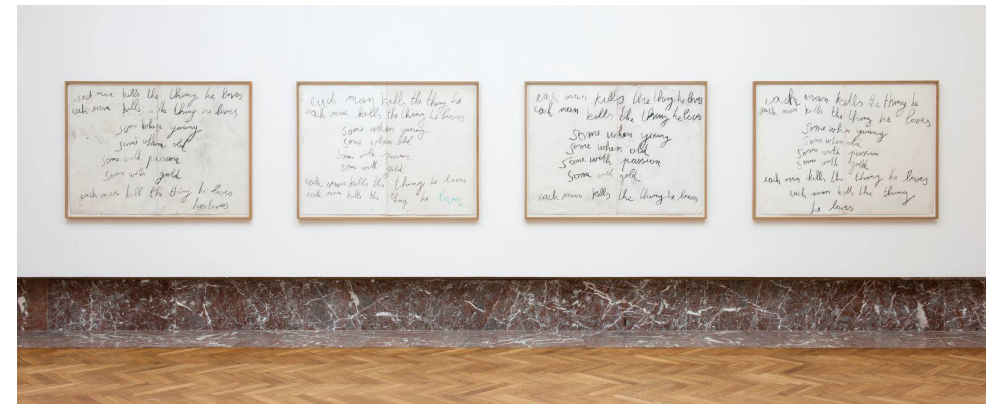 each man kills the thing he loves
each man kills the thing he loves
some when young
some when old
some with passion
some with gold
each man kill the thing he loves
he loves
each man kill the thing he
each man kills the thing he loves
some when young
some when old
some with passion
some with gold
each man kills the thing he loves
each man kills the thing he loves
each man kills the thing he loves
each man kills the thing he loves
some when young
some when old
some with passion
some with gold
each man kills the thing he loves
each man kills the thing he
each man kills the thing he loves
some when young
some when old
some with passion
some with gold
each man kills the thing he loves
each man kills the thing
he loves